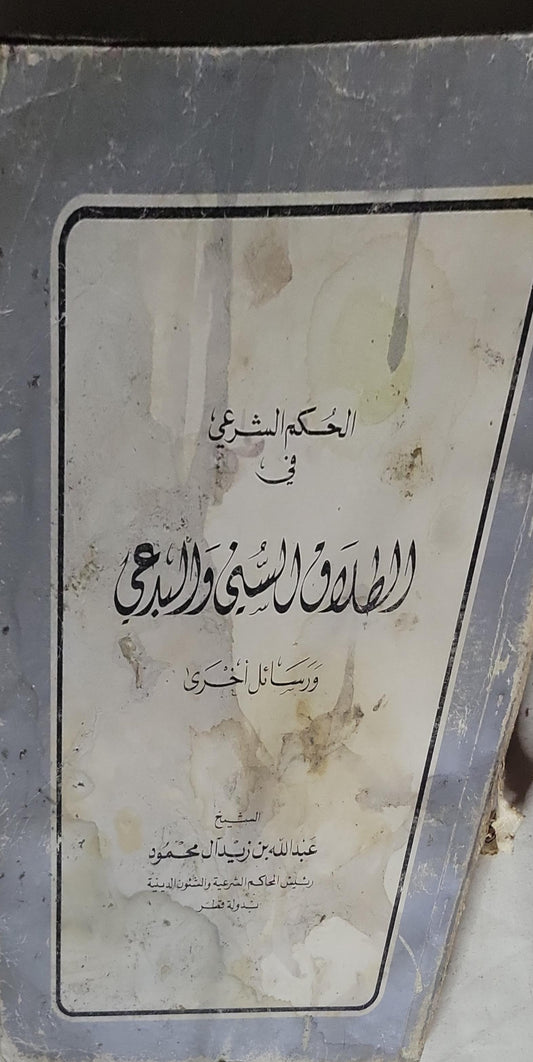 الحُكم الشرعي
في
الطلاق السُّني وَالبدعي
وَرَسَائل أخْرَىٰ
الشيخ
عَبدالله بن زَيد آل محمود
رئيس المحاكم الشرعية والشئون الدينية
بدولة قطر